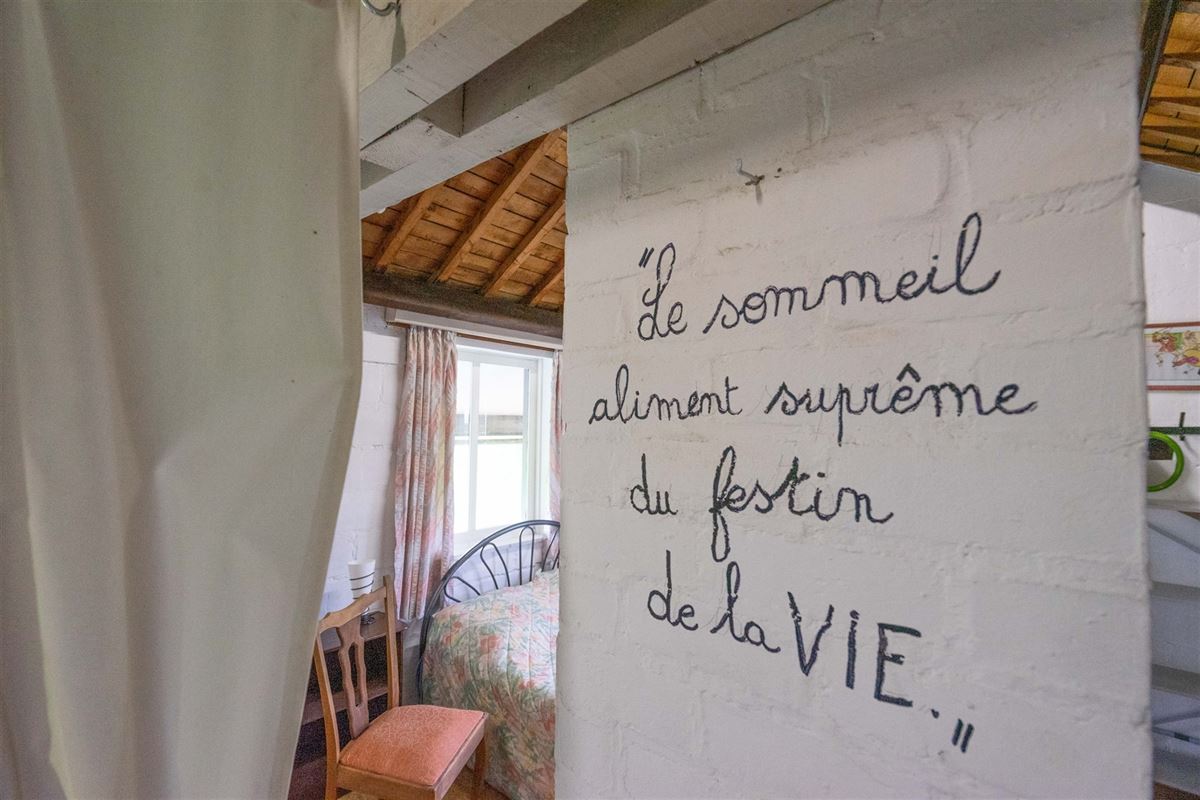 "Le sommeil
aliment suprême
du festin
de la VIE."